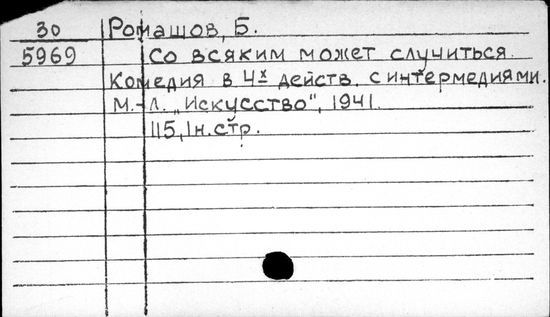 30 Ромашов, Б.
5969 Со всяким может случиться.
Комедия в 4х действ. с интермедиями.
М.-Л. „Искусство", 1941.
115, 1 н. стр.